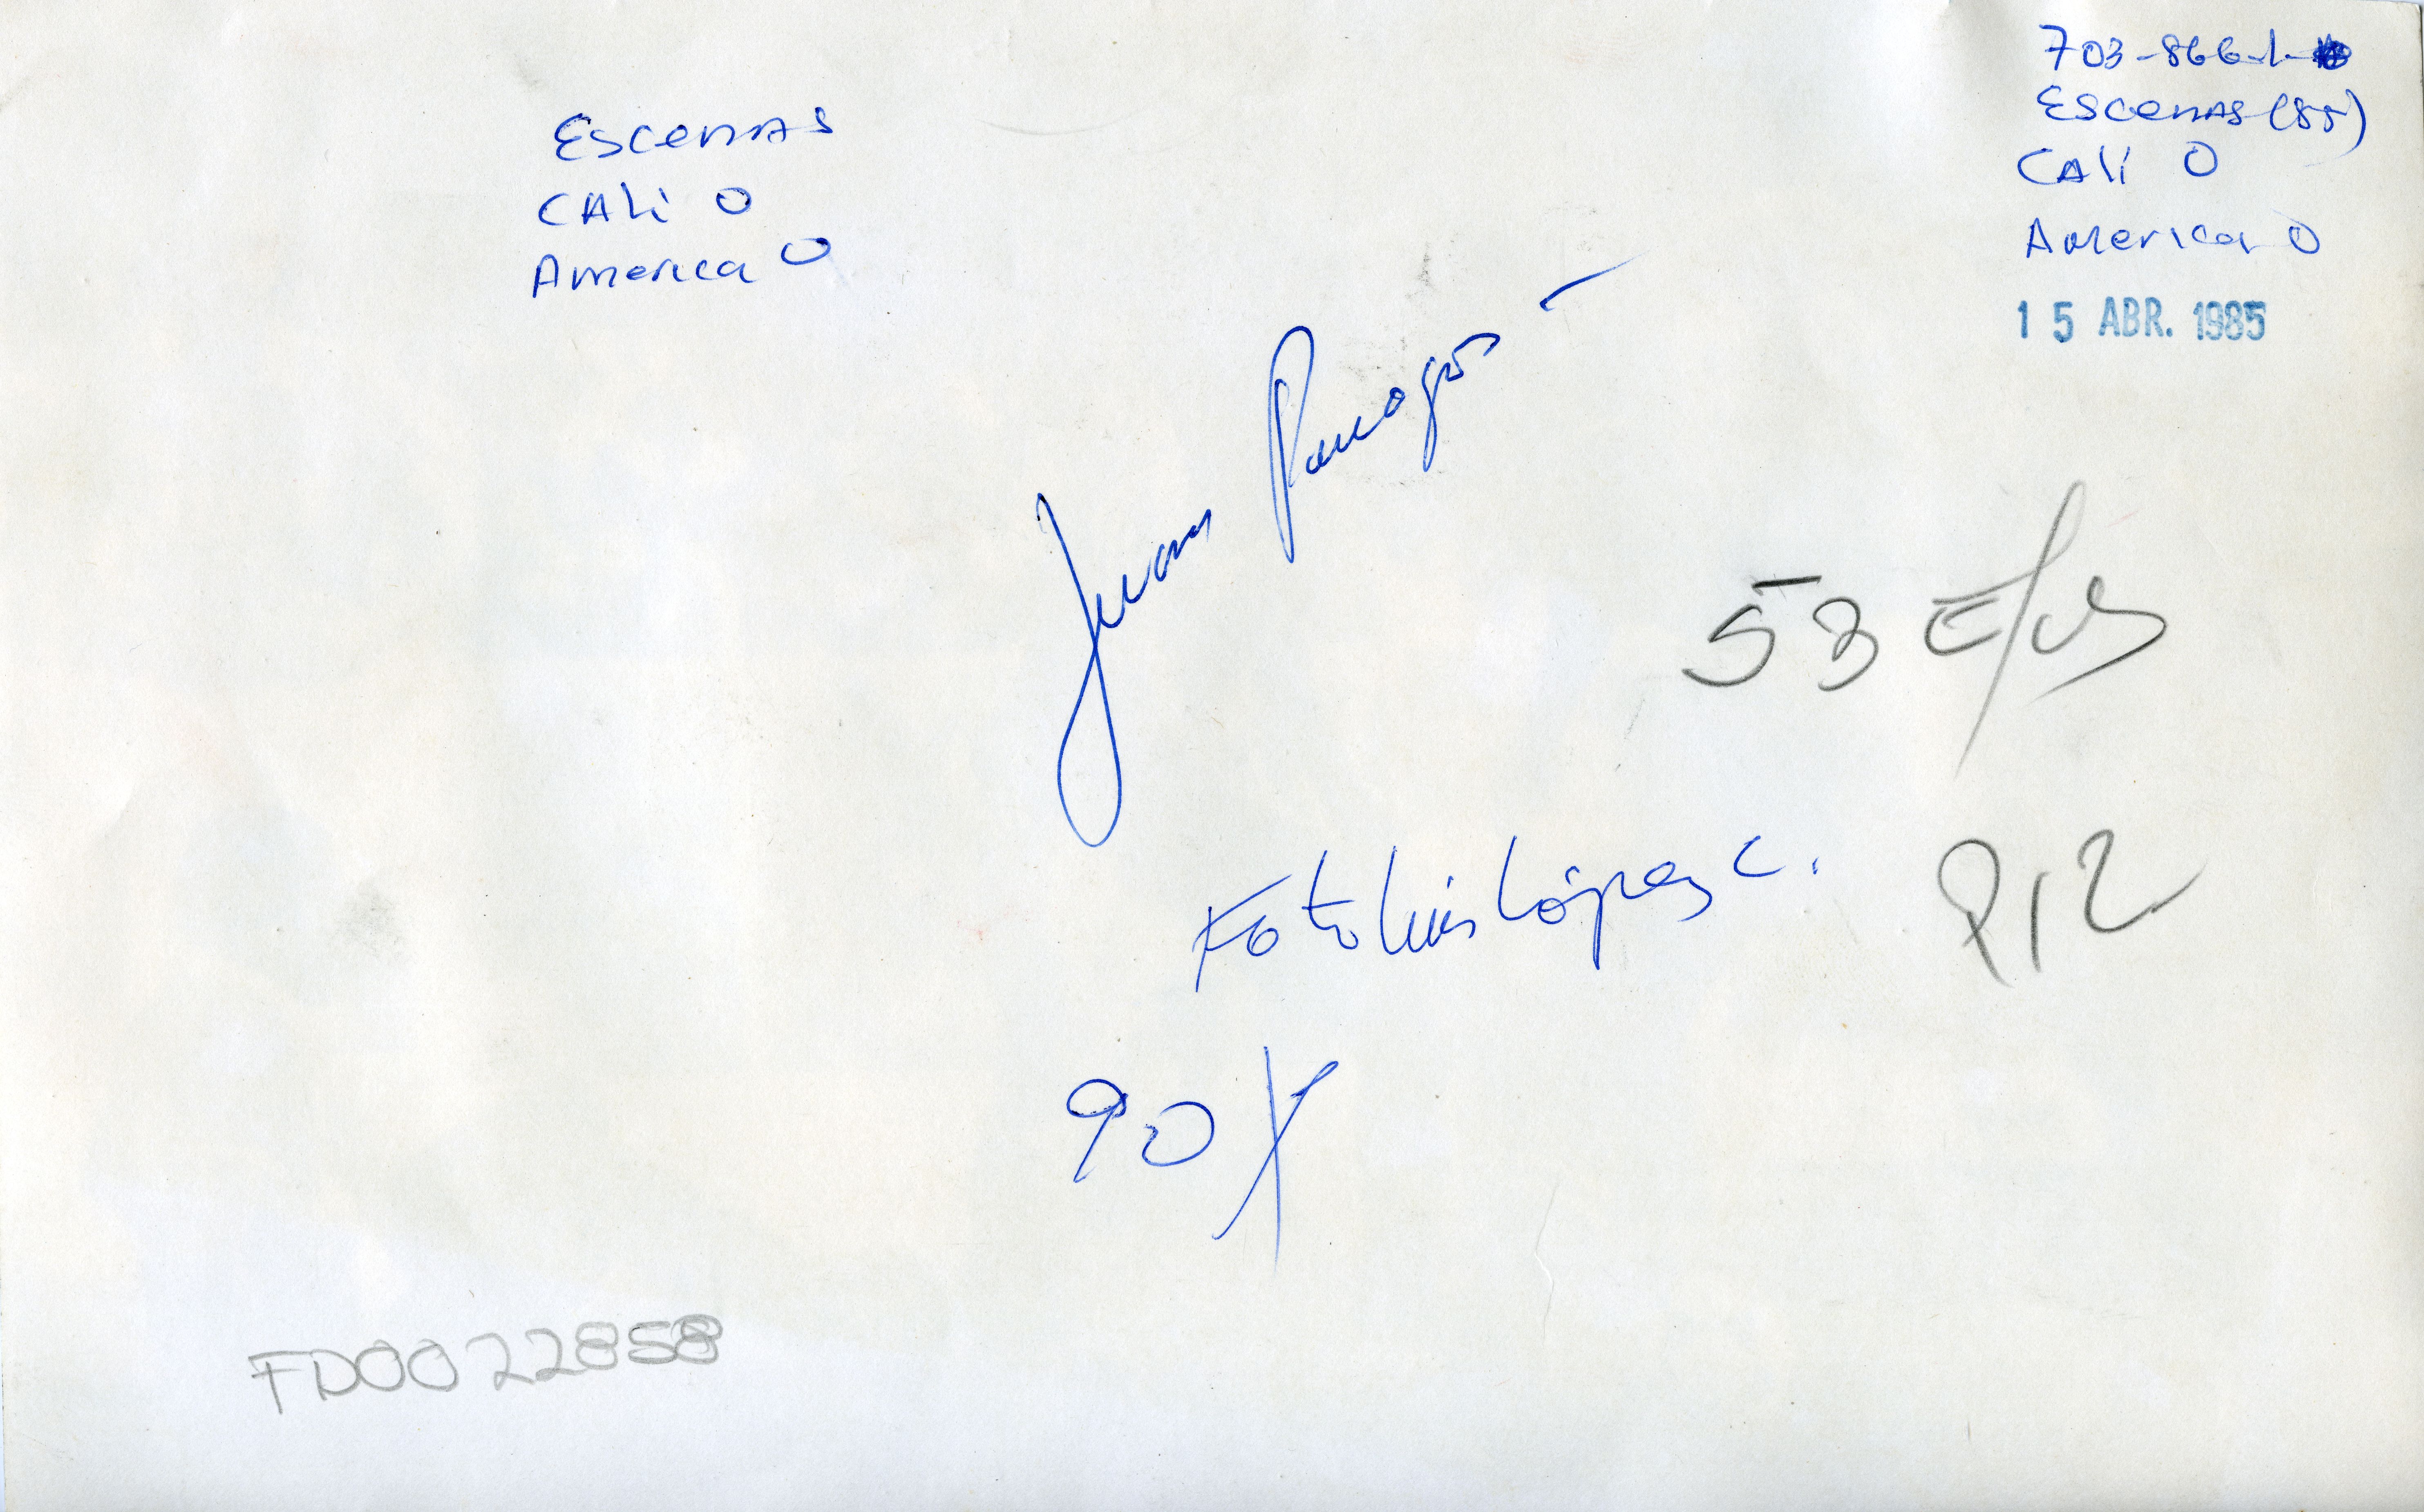 703-866-1-
Escenas (85)
Cali 0
America 0
15 ABR. 1985
Escenas
CALi 0
America 0
Juan
53 E/cs
Foto Luis López C.
P12
90 X
FD0022858